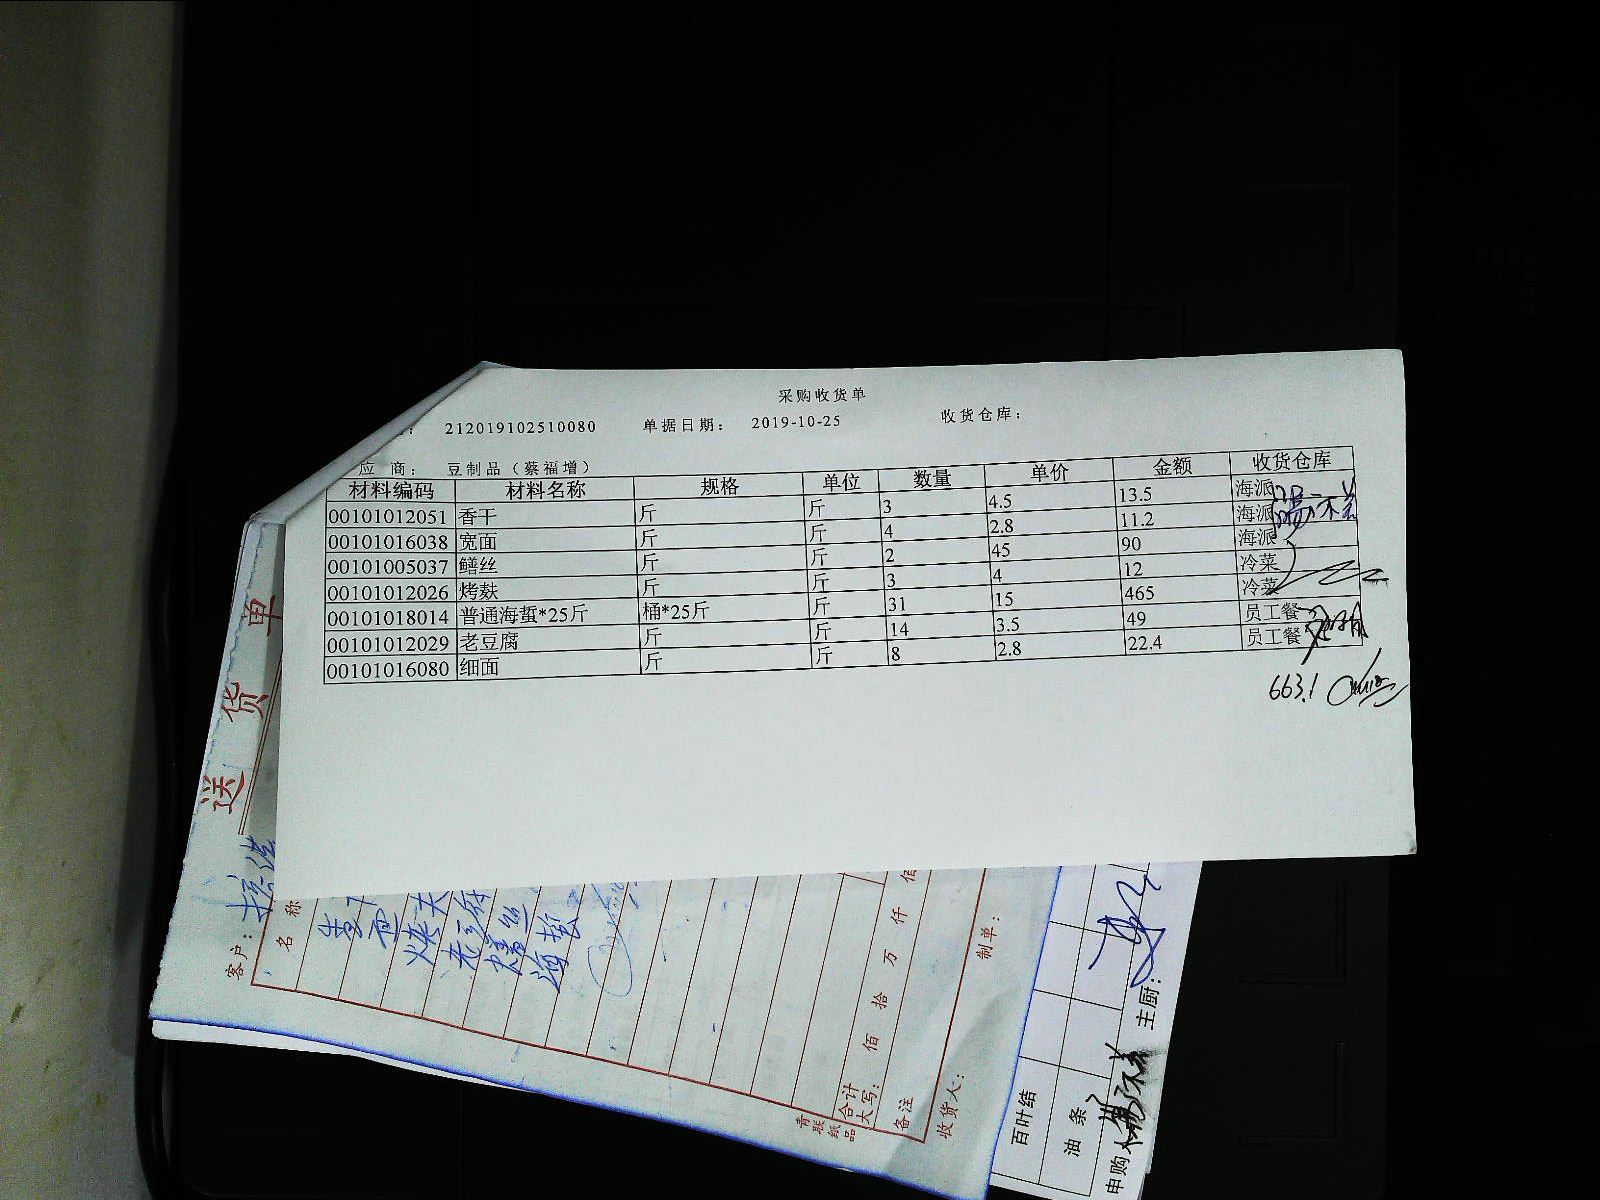 采购收货单
212019102510080 单据日期: 2019-10-25 收货仓库:
应 商: 豆制品（蔡福增）
材料编码 材料名称 规格 单位 数量 单价 金额 收货仓库
00101012051 香干 斤 斤 3 4.5 13.5 海派
00101016038 宽面 斤 斤 4 2.8 11.2 海派
00101005037 鳝丝 斤 斤 2 45 90 海派
00101012026 烤麸 斤 斤 3 4 12 冷菜
00101018014 普通海蜇*25斤 桶*25斤 斤 31 15 465 冷菜
00101012029 老豆腐 斤 斤 14 3.5 49 员工餐
00101016080 细面 斤 斤 8 2.8 22.4 员工餐
663.1
送货单
客户:
名称
海蜇
合计
大写: 佰 拾 万 仟 佰
备注
收货人: 制单:
青联纸品
百叶结
油条
申购人
主厨: